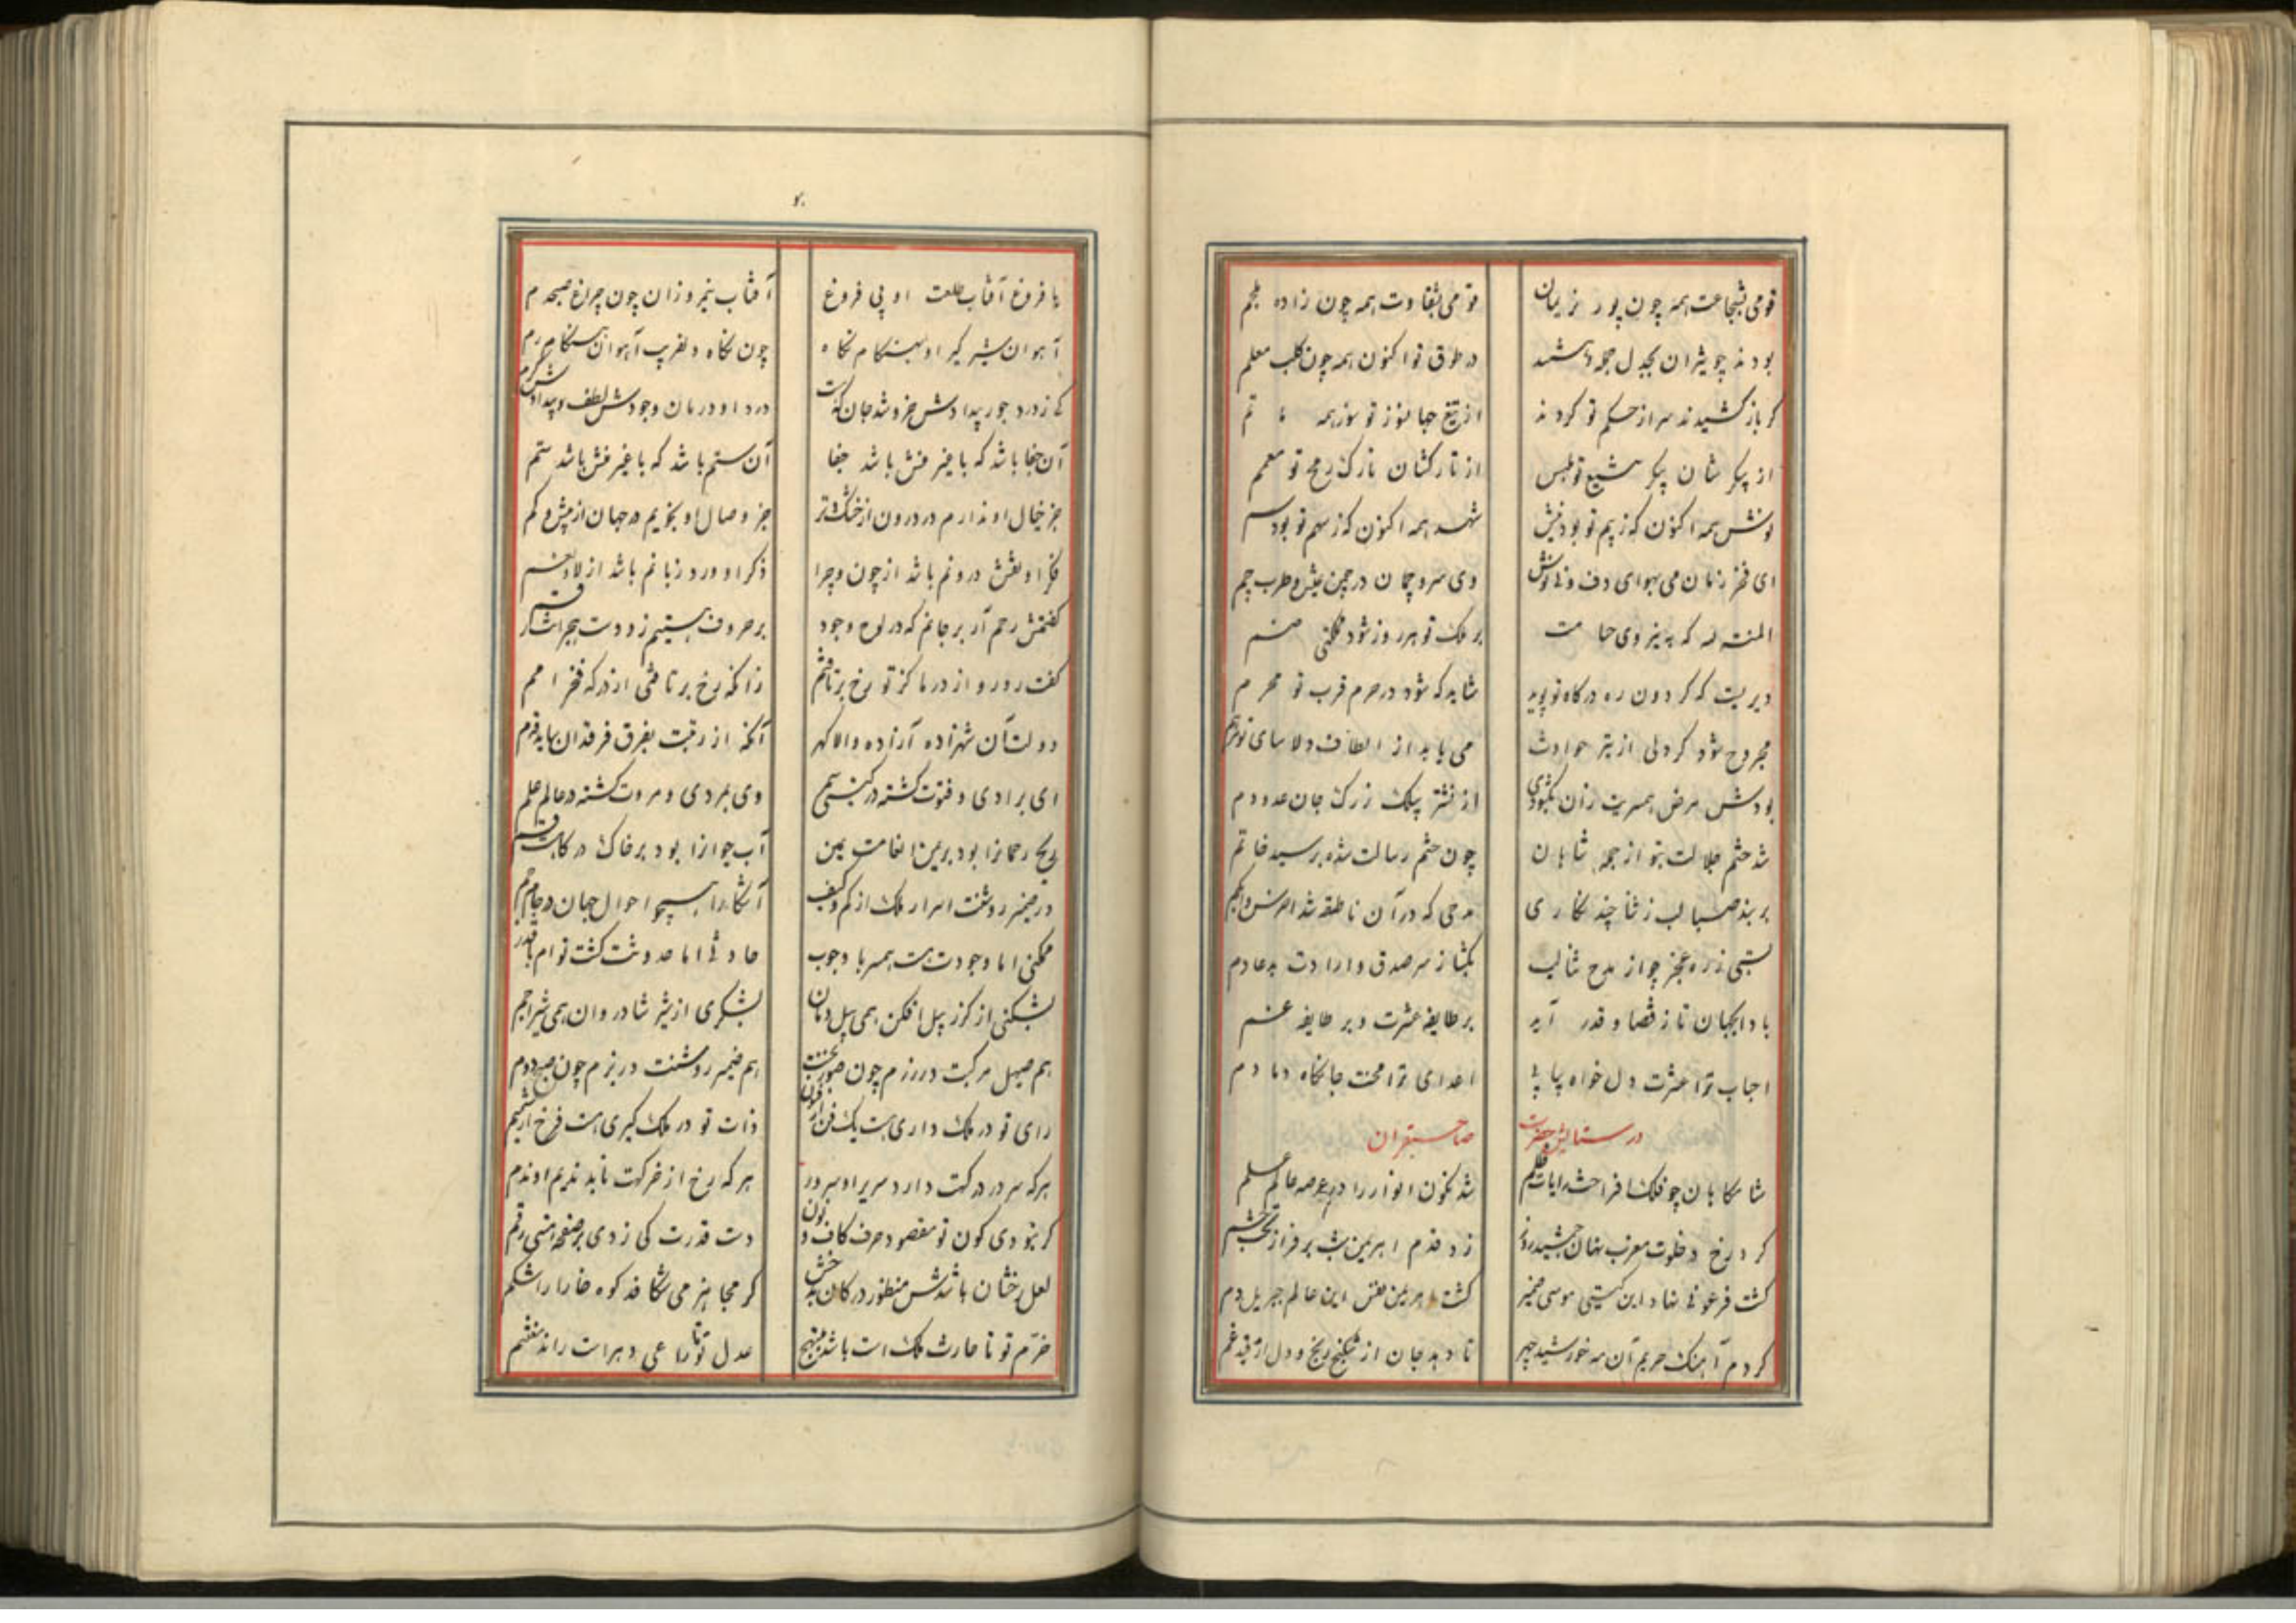 قومی بشجاعت همه چون پور نریمان
قومی بشقاوت همه چون زاده ملجم
بودند چو شیران بجدل جمله
در طوق تو اکنون همه چون کلب معلم
گر باز کشیدند سر از حکم تو کردند
از تیغ جهانسوز تو سوز همه
از پیکرشان پیکر تو
از تارکشان تارک رمح تو معمم
نوشش همه اکنون که ز بیم تو بود نیش
شهد همه اکنون که ز سهم تو بود سم
ای فخر زمان می بهوای دف و نی نوش
وی سرو چمان در چمن عیش و طرب چم
المنة لله که
بر ملک تو هر روز شود ملکی منضم
دیریست که گردون ره درگاه تو پوید
شاید که شود در حرم قرب تو محرم
مجروح شود گر دلی از تیر حوادث
می یابد از الطاف
بودش مرض همسریت زان بگشودی
از نشتر پیلک ز رگ جان عدو دم
شد ختم جلالت بتو از جمله شاهان
چون ختم رسالت شده بر سید خاتم
بربند صبا لب ز ثنا چند نگاری
مدحی که در آن ناطقه شد اخرس و ابکم
بستی ز ره عجز چو از مدح ثنا لب
بگشا ز سر صدق و ارادت بدعا دم
بادا بجهان تا ز قضا و قدر آید
بر طایفه عشرت و بر طایفه غم
احباب ترا عشرت دل خواه پیاپی
اعدای ترا محنت جانکاه دمادم
در ستایش حضرت
صاحبقران
شامگاهان چون فلک افراخت رایات ظلم
شد نگون انوار را در عرصه عالم علم
کرد رخ در خلوت مغرب نهان جمشید روز
زد قدم اهریمن شب بر فراز تخت جم
گشت فرعونی نهاد این گیتی موسی ضمیر
گشت اهریمن نفس این عالم جبریل دم
کردم آهنگ حریم آن مه خورشید چهر
تا دهد جان از شکنج رنج و دل از قید غم
با فروغ آفتاب طلعت او بی فروغ
آفتاب نیمروزان چون چراغ صبحدم
آهوان شیرگیر او بهنگام نگاه
چون نگاه دلفریب آهوان هنگام رم
کی ز درد جور بیدادش خروشد جان
درد او درمان وجودش لطف و بیدادش کرم
آن جفا باشد که با غیر منش باشد جفا
آن ستم باشد که با غیر منش باشد ستم
جز خیال او ندارم در درون از خشک و تر
جز وصال او نجویم در جهان از بیش و کم
فکر او نقش درونم باشد از چون و چرا
ذکر او ورد زبانم باشد از لا و نعم
گفتمش رحم آر بر جانم که در لوح وجود
بر حروف هستیم زد دست هجرانت رقم
گفت رو رو از در ما کز تو رخ برتافتم
زانکه رخ برتافتی از درگه فخر امم
دولت آن شهزاده آزاده والا گهر
آنکه از رتبت بفرق فرقدان ساید قدم
ای برادی و فتوت گشته در گیتی سمر
وی بمردی و مروت گشته در عالم علم
آب حیوانرا بود بر خاک درگاهت قسم
در ضمیر روشنت اسرار ملک از کم و کیف
آشکارا همچو احوال جهان در جام جم
ممکنی اما وجودت هست همسر با وجوب
حادثی اما حدوثت گشت توام با قدم
بشکنی از گرز پیل افکن همی پیل دمان
بشکری از تیر شادروان همی شیر اجم
هم صهیل مرکبت در رزم چون صور نخست
هم ضمیر روشنت در بزم چون صبح دوم
رای تو در ملک داری هست یک فن از فنون
ذات تو در ملک گیری هست فرخ از شیم
هرکه سر در درگهت دارد سریر او سرور
هرکه رخ از خرگهت تابد ندیم او ندم
گر نبودی کون تو مقصود حرف کاف و نون
دست قدرت کی زدی بر صفحه هستی رقم
لعل رخشان باشدش منظور در کان بدخش
گر مجاهز می شکافد کوه خارا را شکم
حزم تو تا حارث ملک است باشد مبتهج
عدل تو تا راعی دهر است راند مغتنم